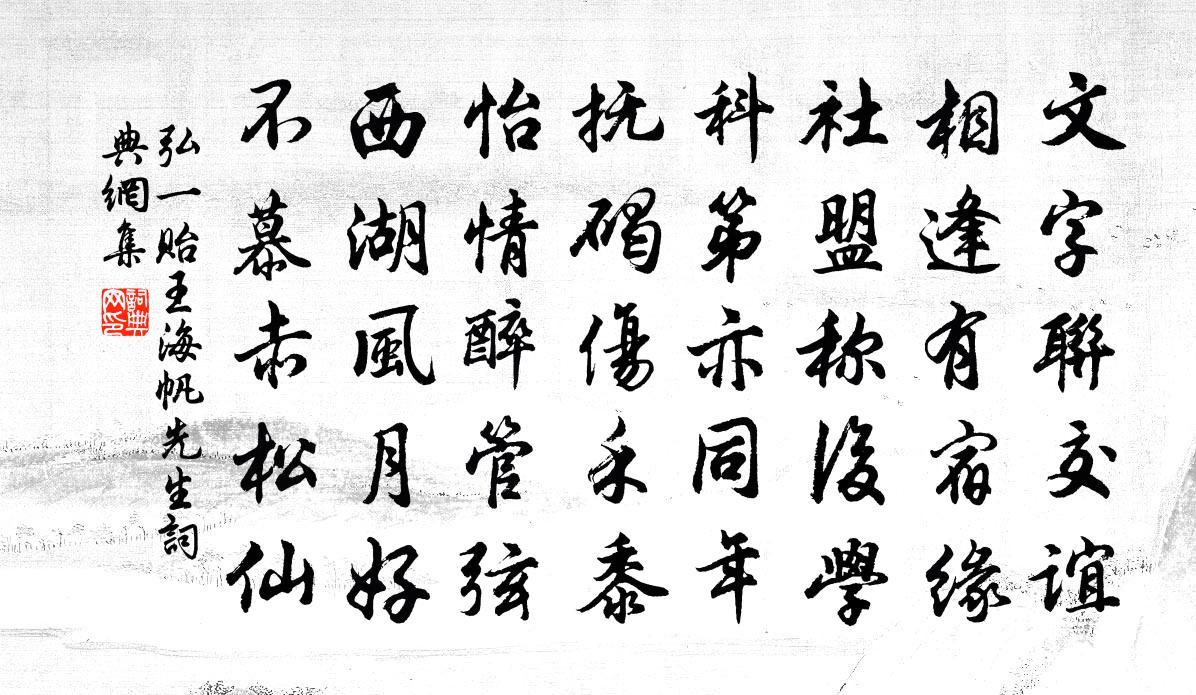 文字聯交誼
相逢有宿緣
社盟称後學
科第亦同年
抚碣傷禾黍
怡情醉管弦
西湖風月好
不慕赤松仙
弘一贻王海帆先生詞
典網集
詞典
网印